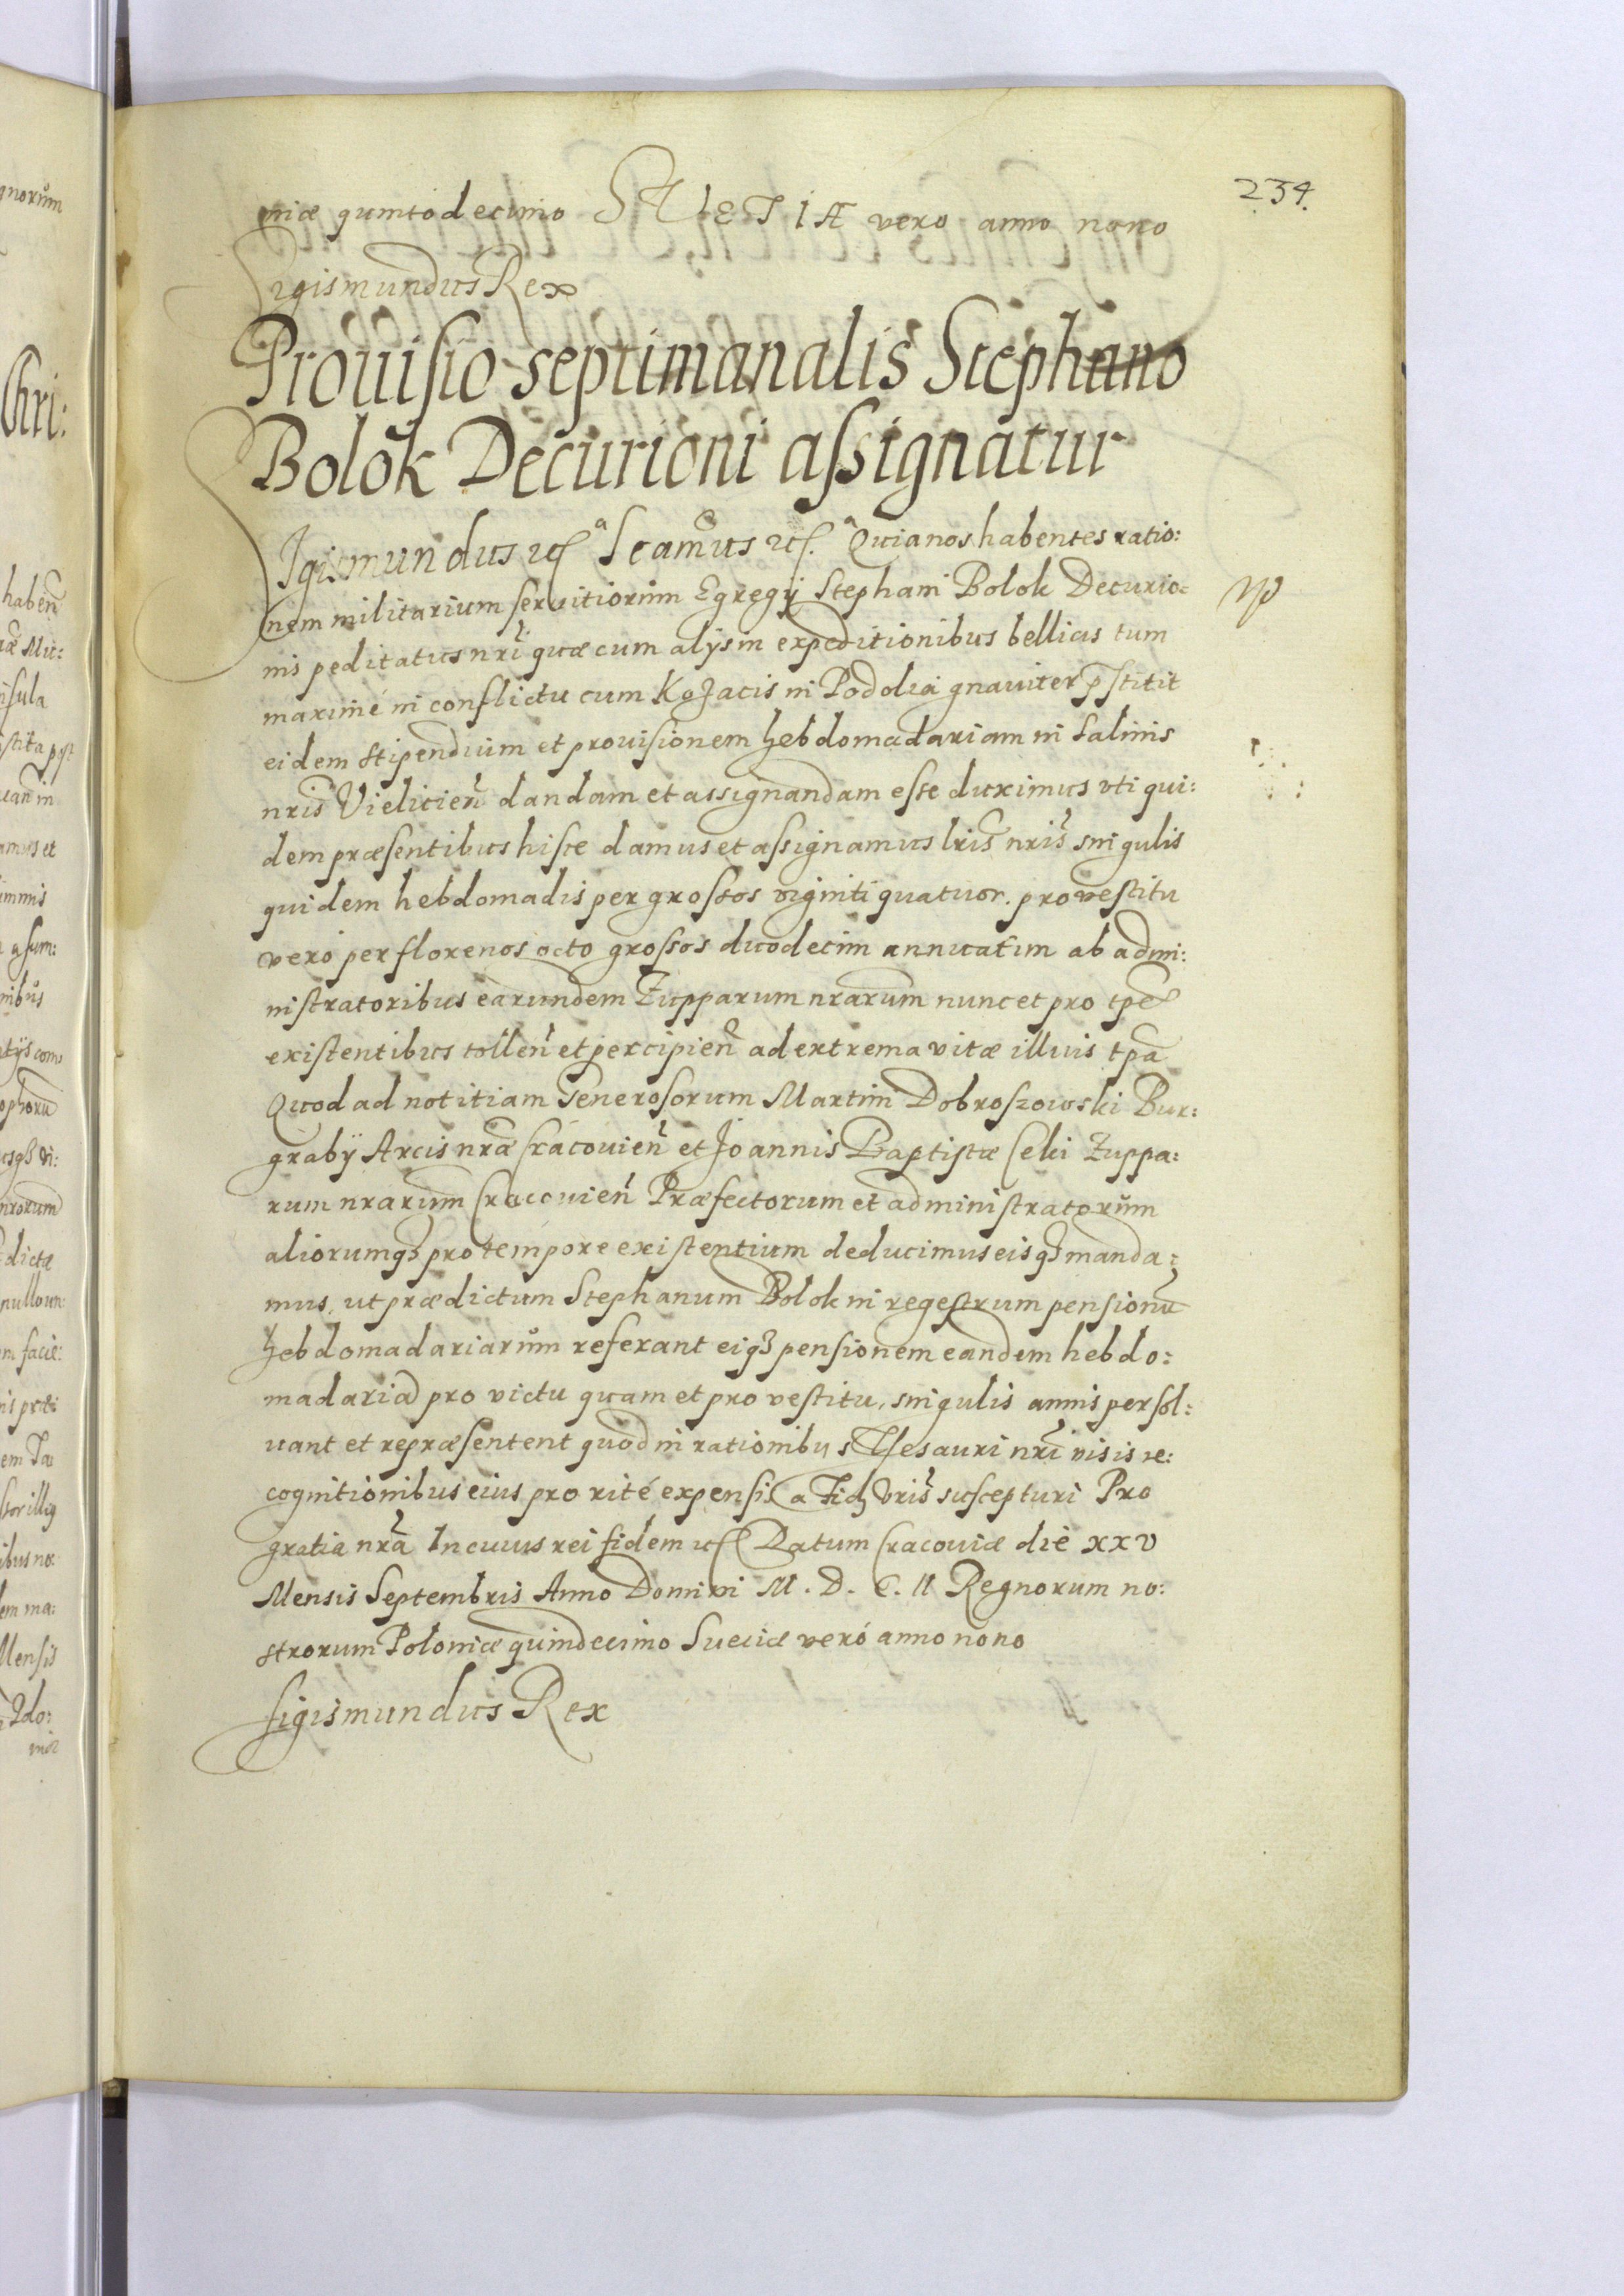 234.
niæ quintodecimo SVETIÆ vero anno nono
Sigismundus Rex
Prouisio septimanalis Stephano
Bolok Decurioni assignatur
Sigismundus etc. Significamus etc. Quia nos habentes ratio:
nem militarium seruitiorum Egregij Stephani Bolok Decurio:
nis peditatus nri quæ cum alijs in expeditionibus bellicis tum
maximé in conflictu cum Kozacis in Podolia gnauiter pstitit
eidem stipendium et prouisionem hebdomadariam in Salinis
nris Vielicien dandam et assignandam esse duximus vti qui:
dem præsentibus hisce damus et assignamus lris nris singulis
quidem hebdomadis per grossos viginti quatuor. pro vestitu
veró per florenos octo grossos duodecim annuatim ab admi:
nistratoribus earundem Zupparum nrarum nunc et pro tpe
existentibus tollen et percipien ad extrema vitæ illius tpa
Quod ad notitiam Generosorum Martini Dobroszowski Bur:
grabÿ Arcis nræ Cracouien et Joannis Baptistæ Ceki Zuppa:
rum nrarum Cracouien Præfectorum et administratorum
aliorumq3 pro tempore existentium deducimus eisq3 manda:
mus, ut prædictum Stephanum Bolok in regestrum pensionu
hebdomadariarum referant eiq3 pensionem eandem hebdo:
madaria pro victu quam et pro vestitu, singulis annis persol:
uant et repræsentent quod in rationibus Thesauri nri visis re:
cognitionibus eius pro rité expensis a Fid vris suscepturi Pro
gratia nra In cuius rei fidem etc Datum Cracouiæ die xxv
Mensis Septembris Anno Domini M. D. C. II Regnorum no:
strorum Poloniæ quindecimo Sueciæ veró anno nono
Sigismundus Rex